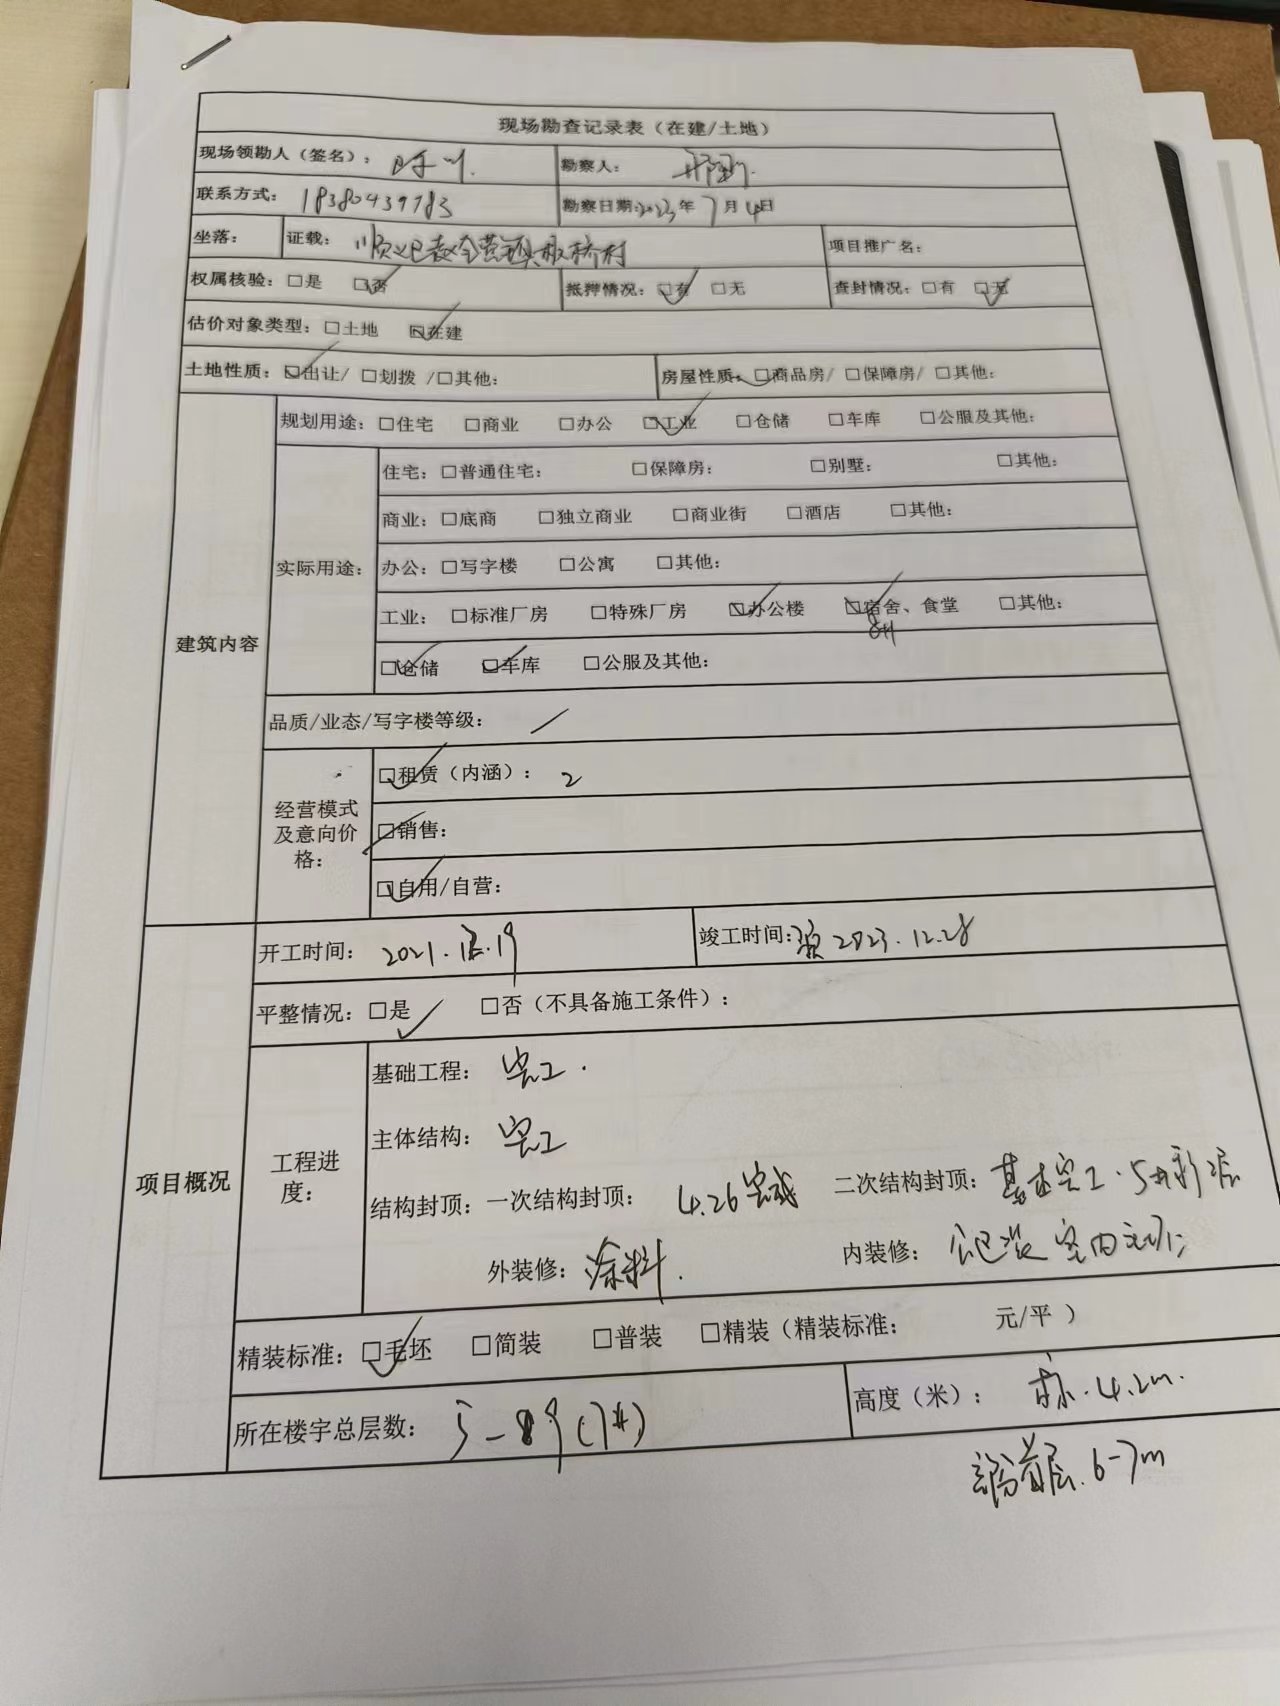 现场勘查记录表（在建/土地）
现场领勘人（签名）： 勘察人：
联系方式：18380439783 勘察日期:2023年7月4日
坐落： 证载：顺义区赵全营镇板桥村 项目推广名：
权属核验：□是 ☑否 抵押情况：☑有 □无 查封情况：□有 ☑无
估价对象类型：□土地 ☑在建
土地性质：☑出让/ □划拨 /□其他： 房屋性质：☑商品房/ □保障房/ □其他：
建筑内容
规划用途：□住宅 □商业 □办公 ☑工业 □仓储 □车库 □公服及其他：
实际用途：
住宅：□普通住宅： □保障房： □别墅： □其他：
商业：□底商 □独立商业 □商业街 □酒店 □其他：
办公：□写字楼 □公寓 □其他：
工业：□标准厂房 □特殊厂房 ☑办公楼 ☑宿舍、食堂 □其他：
8#
☑仓储 ☑车库 □公服及其他：
品质/业态/写字楼等级： /
经营模式及意向价格：
☑租赁（内涵）：2
☑销售：
☑自用/自营：
项目概况
开工时间：2021.12.19 竣工时间:预2023.12.28
平整情况：☑是 □否（不具备施工条件）：
工程进度：
基础工程：完工.
主体结构：完工
结构封顶：一次结构封顶：4.26完成 二次结构封顶：基本完工.5#
外装修：涂料. 内装修：公区装 室内
精装标准：☑毛坯 □简装 □普装 □精装（精装标准： 元/平）
所在楼宇总层数：5-8 (7#) 高度（米）：4.2m.
部分首层.6-7m